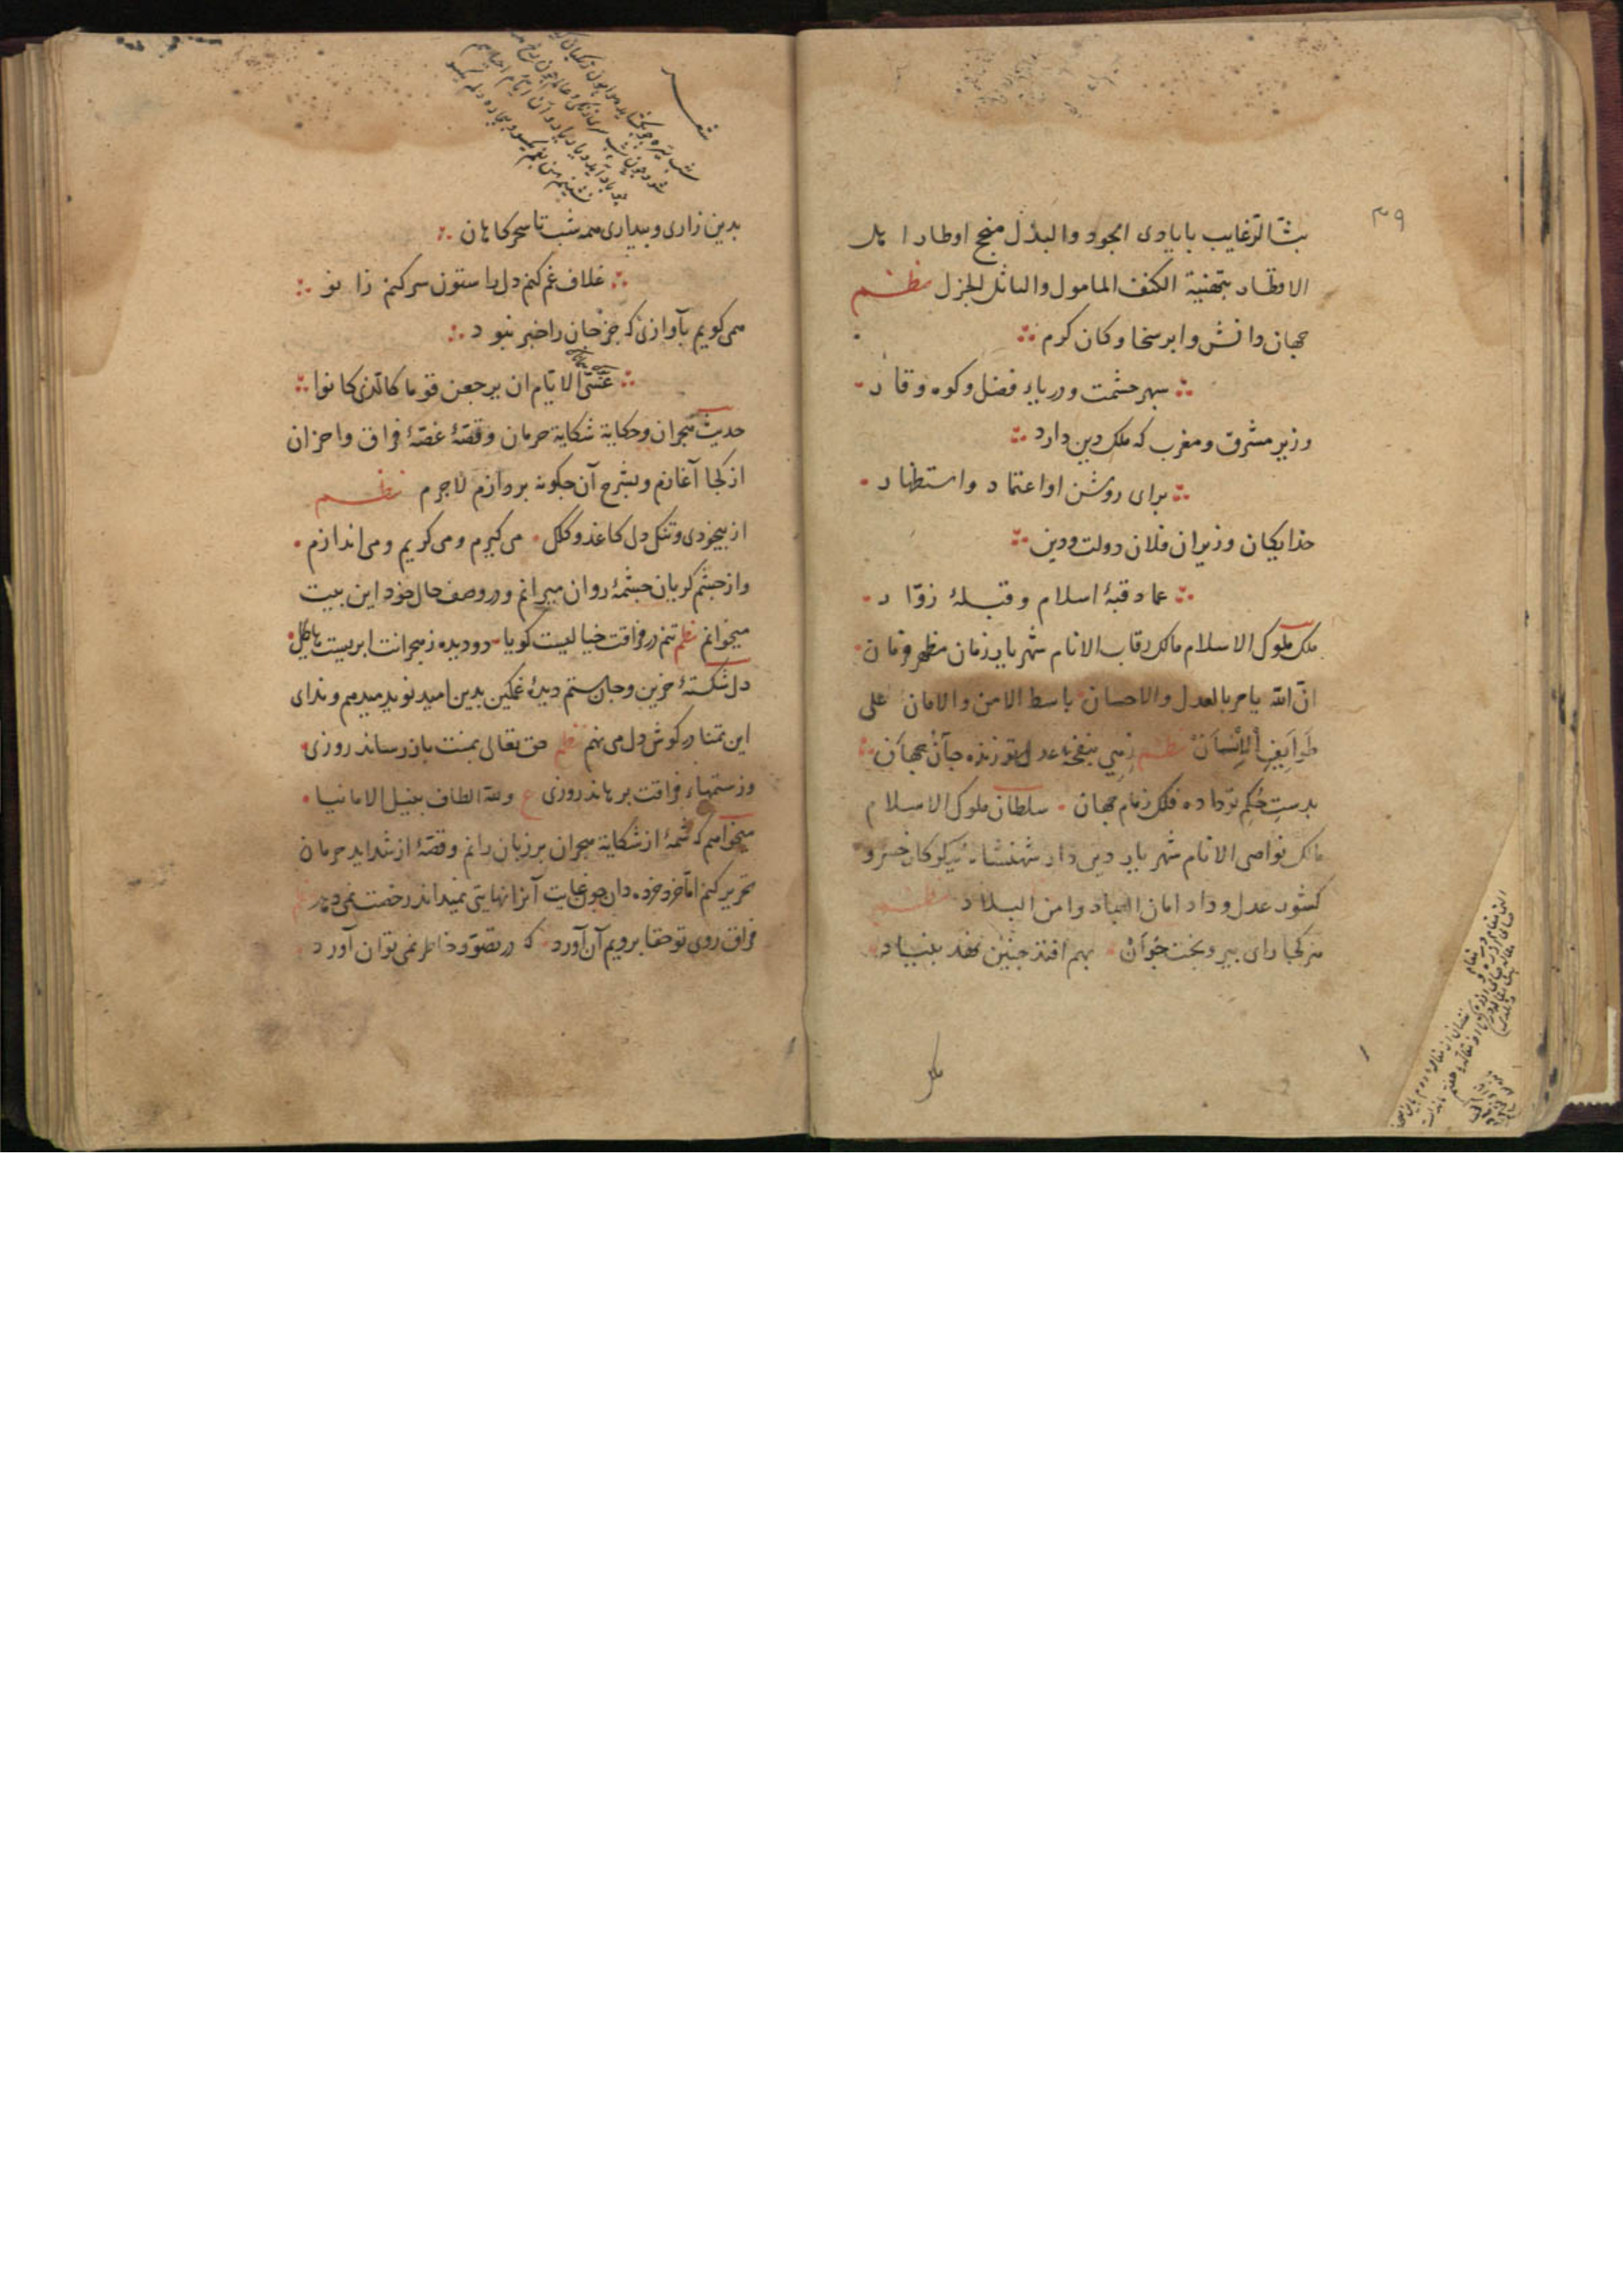 ۴۹
بثّ الرّغایب بایادی الجود والبذل منجح اوطار اهل
الاقطار بتهنیة الکنف المامول والنائل الجزل نظم
جهان دانش وابر سخا وکان کرم
سپهر حشمت ودریاء فضل وکوه وقار
وزیر مشرق ومغرب که ملک دین دارد
برای روشن او اعتماد واستظهار
خدایکان وزیران فلان دولت ودین
عماد قبهٔ اسلام وقبلهٔ زوّار
ملک ملوک الاسلام مالک رقاب الانام شهریار زمان مظهر فرمان
انّ الله یامر بالعدل والاحسان باسط الامن والامان علی
طوایف الانسان نظم زهی بنفحهٔ عدل تو زنده جان جهان
بدست حکم تو داده فلک زمام جهان سلطان ملوک الاسلام
مالک نواصی الانام شهریار دین دار شهنشاه نیکوکار خسرو
کشور عدل وداد امان العباد وامن البلاد نظم
هر کجا رای پیر وبخت جوان بهم افتد چنین نهد بنیاد
ملک
شعر
بدین زاری وبیداری همه شب تا سحرکاهان
غلاف غم کنم دل را ستون سر کنم زانو
همی کویم بآوازی که جز جان را خبر نبود
عسی الایّام ان یرجعن قوما کالّذی کانوا
حدیث هجران وحکایة شکایة حرمان وقصّهٔ غصّهٔ فراق واحزان
از کجا آغازم وبشرح آن چکونه پردازم لاجرم نظم
از بیخودی وتنکدل کاغذ وکلک می کیرم ومی کریم ومی اندازم
واز چشم کریان چشمهٔ روان میرانم ودر وصف حال خود این بیت
میخوانم نظم تنم در فراقت خیالیست کویا دو دیده ز هجرانت ابریست هاطل
دل شکستهٔ حزین وجان ستم دیدهٔ غمکین بدین امید نوید میدهم وندای
این تمنا در کوش دل می نهم نظم حق تعالی بمنت باز رساند روزی
وز ستمهاء فراقت برهاند روزی ع ولله الطاف بنیل الامانیا
میخواهم که شمهٔ از شکایة هجران بر زبان رانم وقصّهٔ از شداید حرمان
تحریر کنم امّا خرد خرده دان چون غایت آنرا نهایتی نمیداند رخصت نمی دهد
فراق روی تو حقا برویم آن آورد که در تصوّر وخاطر نمی توان آورد